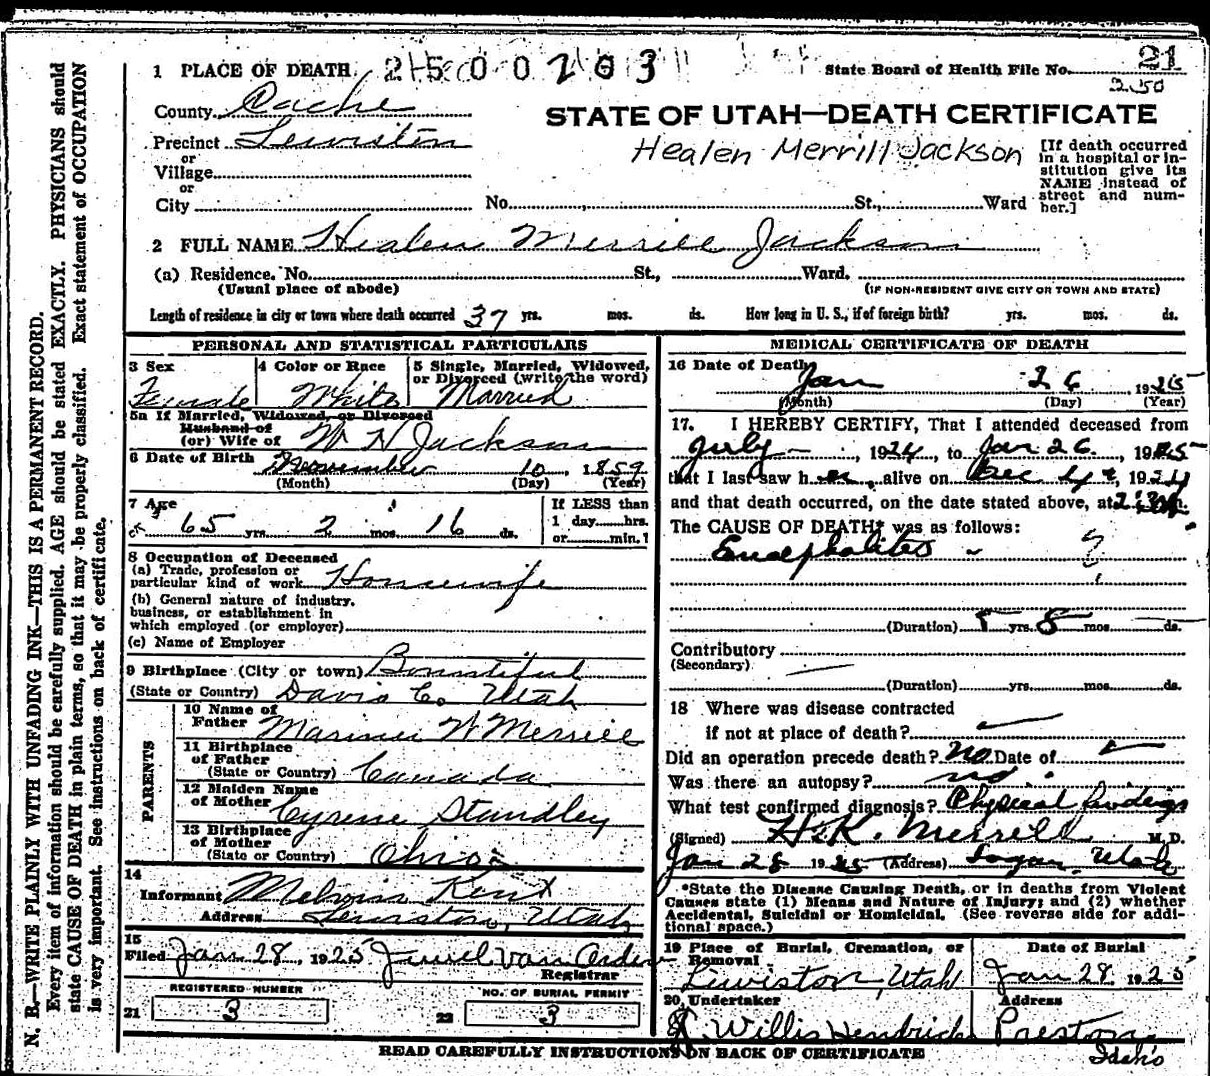 1 PLACE OF DEATH 2500203 State Board of Health File No. 21
2.50
County Cache STATE OF UTAH—DEATH CERTIFICATE
Precinct Lewiston Healen Merrill Jackson
or
Village
or
City No. St., Ward
[If death occurred
in a hospital or in-
stitution give its
NAME instead of
street and num-
ber.]
2 FULL NAME Healen Merrill Jackson
(a) Residence. No. St., Ward.
(Usual place of abode) (IF NON-RESIDENT GIVE CITY OR TOWN AND STATE)
Length of residence in city or town where death occurred 37 yrs. mos. ds. How long in U. S., if of foreign birth? yrs. mos. ds.
PERSONAL AND STATISTICAL PARTICULARS
3 Sex 4 Color or Race 5 Single, Married, Widowed,
or Divorced (write the word)
Female White Married
5a If Married, Widowed, or Divorced
Husband of
(or) Wife of W N Jackson
6 Date of Birth November 10, 1859
(Month) (Day) (Year)
7 Age If LESS than
65 yrs. 2 mos. 16 ds. 1 day......hrs.
or......min.?
8 Occupation of Deceased
(a) Trade, profession or
particular kind of work Housewife
(b) General nature of industry,
business, or establishment in
which employed (or employer)
(c) Name of Employer
9 Birthplace (City or town) Bountiful
(State or Country) Davis Co. Utah
PARENTS
10 Name of
Father Mariner W Merrill
11 Birthplace
of Father
(State or Country) Canada
12 Maiden Name
of Mother Cyrene Standley
13 Birthplace
of Mother
(State or Country) Ohio
14
Informant Kent
Address Lewiston, Utah
15
Filed Jan 28, 1925 Van Orden
Registrar
REGISTERED NUMBER NO. OF BURIAL PERMIT
21 3 22 3
MEDICAL CERTIFICATE OF DEATH
16 Date of Death
Jan 26 1925
(Month) (Day) (Year)
17. I HEREBY CERTIFY, That I attended deceased from
July, 1924, to Jan 26, 1925
that I last saw her alive on Dec 4, 1924
and that death occurred, on the date stated above, at
The CAUSE OF DEATH* was as follows:
Encephalites ?
(Duration) yrs. 8 mos. ds.
Contributory
(Secondary)
(Duration) yrs. mos. ds.
18 Where was disease contracted
if not at place of death?
Did an operation precede death? no Date of
Was there an autopsy? no
What test confirmed diagnosis? Physical findings
(Signed) H.K. Merrell M.D.
Jan 28 1925 (Address) Logan, Utah
*State the Disease Causing Death, or in deaths from Violent
Causes state (1) Means and Nature of Injury; and (2) whether
Accidental, Suicidal or Homicidal. (See reverse side for addi-
tional space.)
19 Place of Burial, Cremation, or Date of Burial
Removal
Lewiston, Utah Jan 28, 1925
20 Undertaker Address
Willis Hendricks Preston,
Idaho
READ CAREFULLY INSTRUCTIONS ON BACK OF CERTIFICATE
N. B.—WRITE PLAINLY WITH UNFADING INK—THIS IS A PERMANENT RECORD.
Every item of information should be carefully supplied. AGE should be stated EXACTLY. PHYSICIANS should
state CAUSE OF DEATH in plain terms, so that it may be properly classified. Exact statement of OCCUPATION
is very important. See instructions on back of certificate.